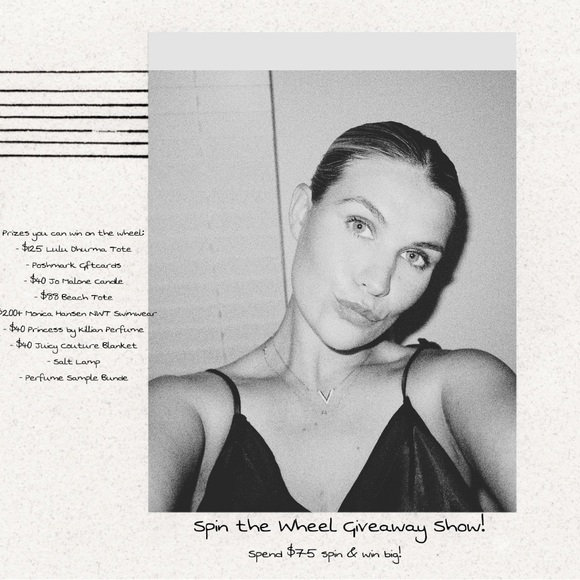 Prizes you can win on the wheel:
- $125 Lulu Dhurma Tote
- Poshmark Giftcards
- $40 Jo Malone Candle
- $88 Beach Tote
$200+ Monica Hansen NWT Swimwear
- $40 Princess by Killian Perfume
- $40 Juicy Couture Blanket
- Salt Lamp
- Perfume Sample Bundle
Spin the Wheel Giveaway Show!
Spend $75 spin & win big!